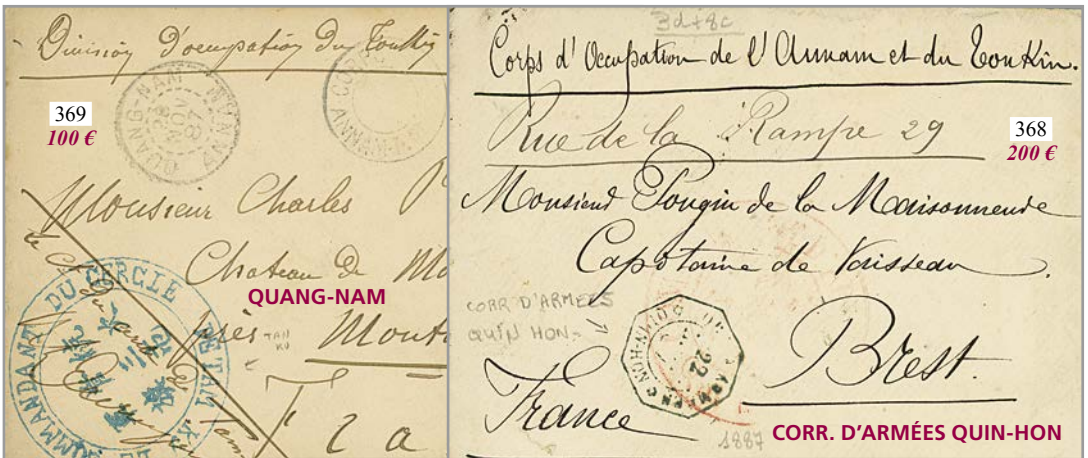 Division d'occupation du Tonkin
QUANG-NAM
ANNAM
28
NOV
87
CORR
ANNAM
369
100 €
Monsieur Charles
Chateau de
près
TAN
KU
QUANG-NAM
COMMANDANT DU CERCLE
DE TAM KY
3d+8c
Corps d'Occupation de l'Annam et du Tonkin.
Rue de la Rampe 29
368
200 €
Monsieur Pougin de la Maisonneuve
Capitaine de Vaisseau.
CORR D'ARMEES
QUIN HON
22
Brest.
France
1887
CORR. D'ARMÉES QUIN-HON